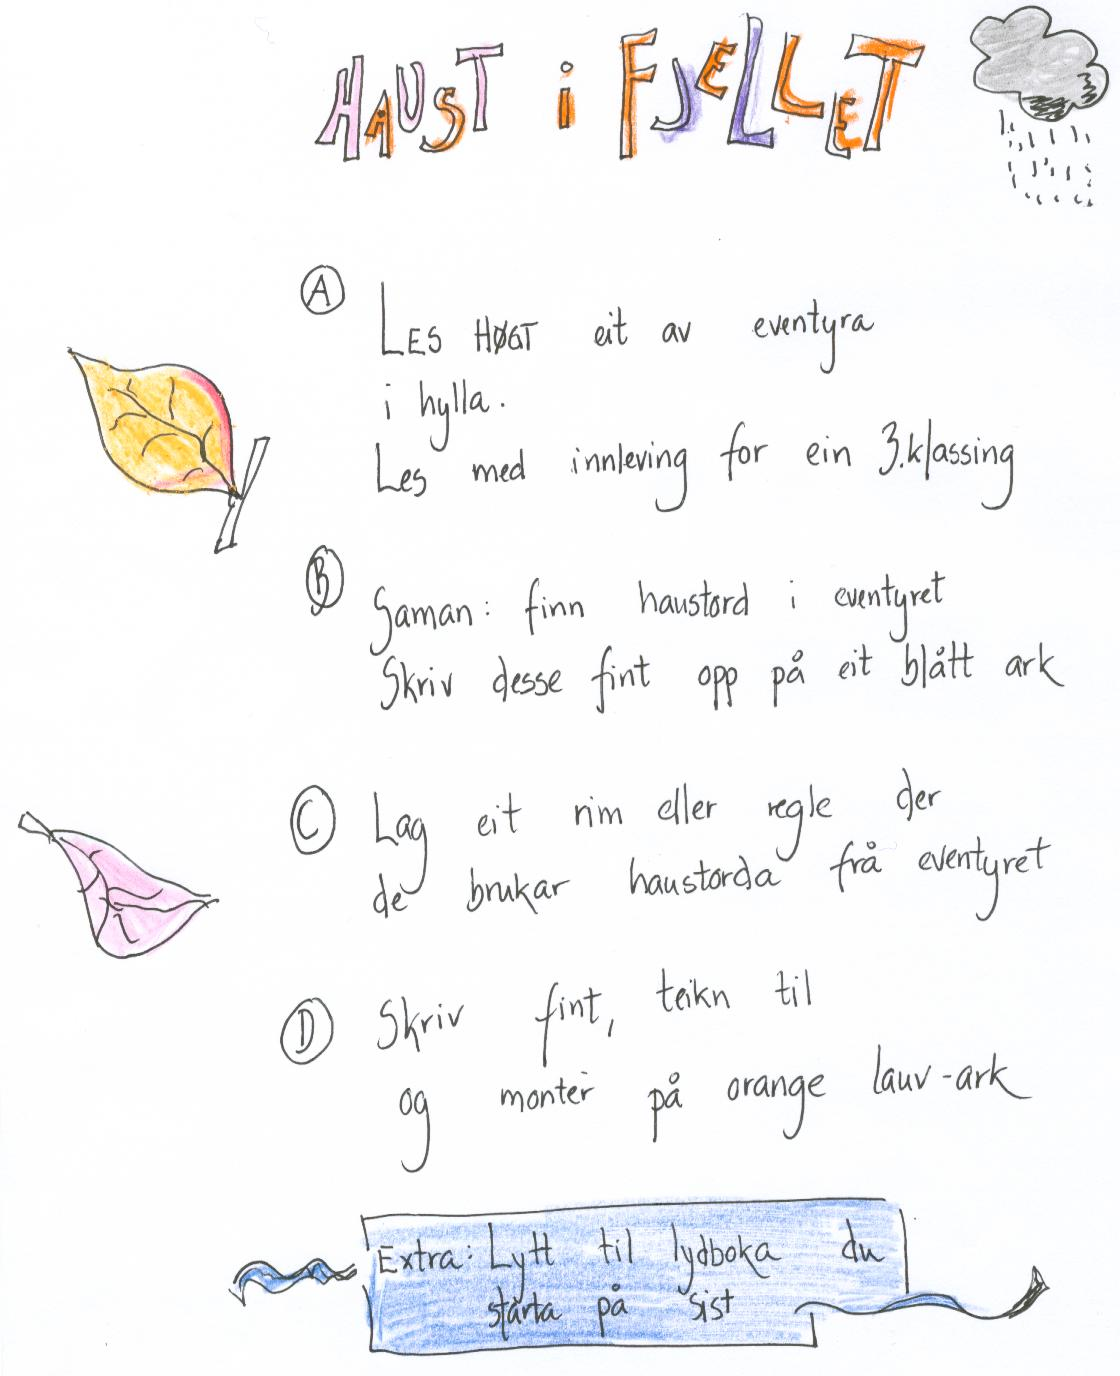 HAUST i FJELLET
A
LES HØGT eit av eventyra
i hylla.
Les med innleving for ein 3.klassing
B
Saman: finn haustord i eventyret
Skriv desse fint opp på eit blått ark
C
Lag eit rim eller regle der
de brukar haustorda frå eventyret
D
Skriv fint, teikn til
og monter på orange lauv-ark
Extra: Lytt til lydboka du
starta på sist